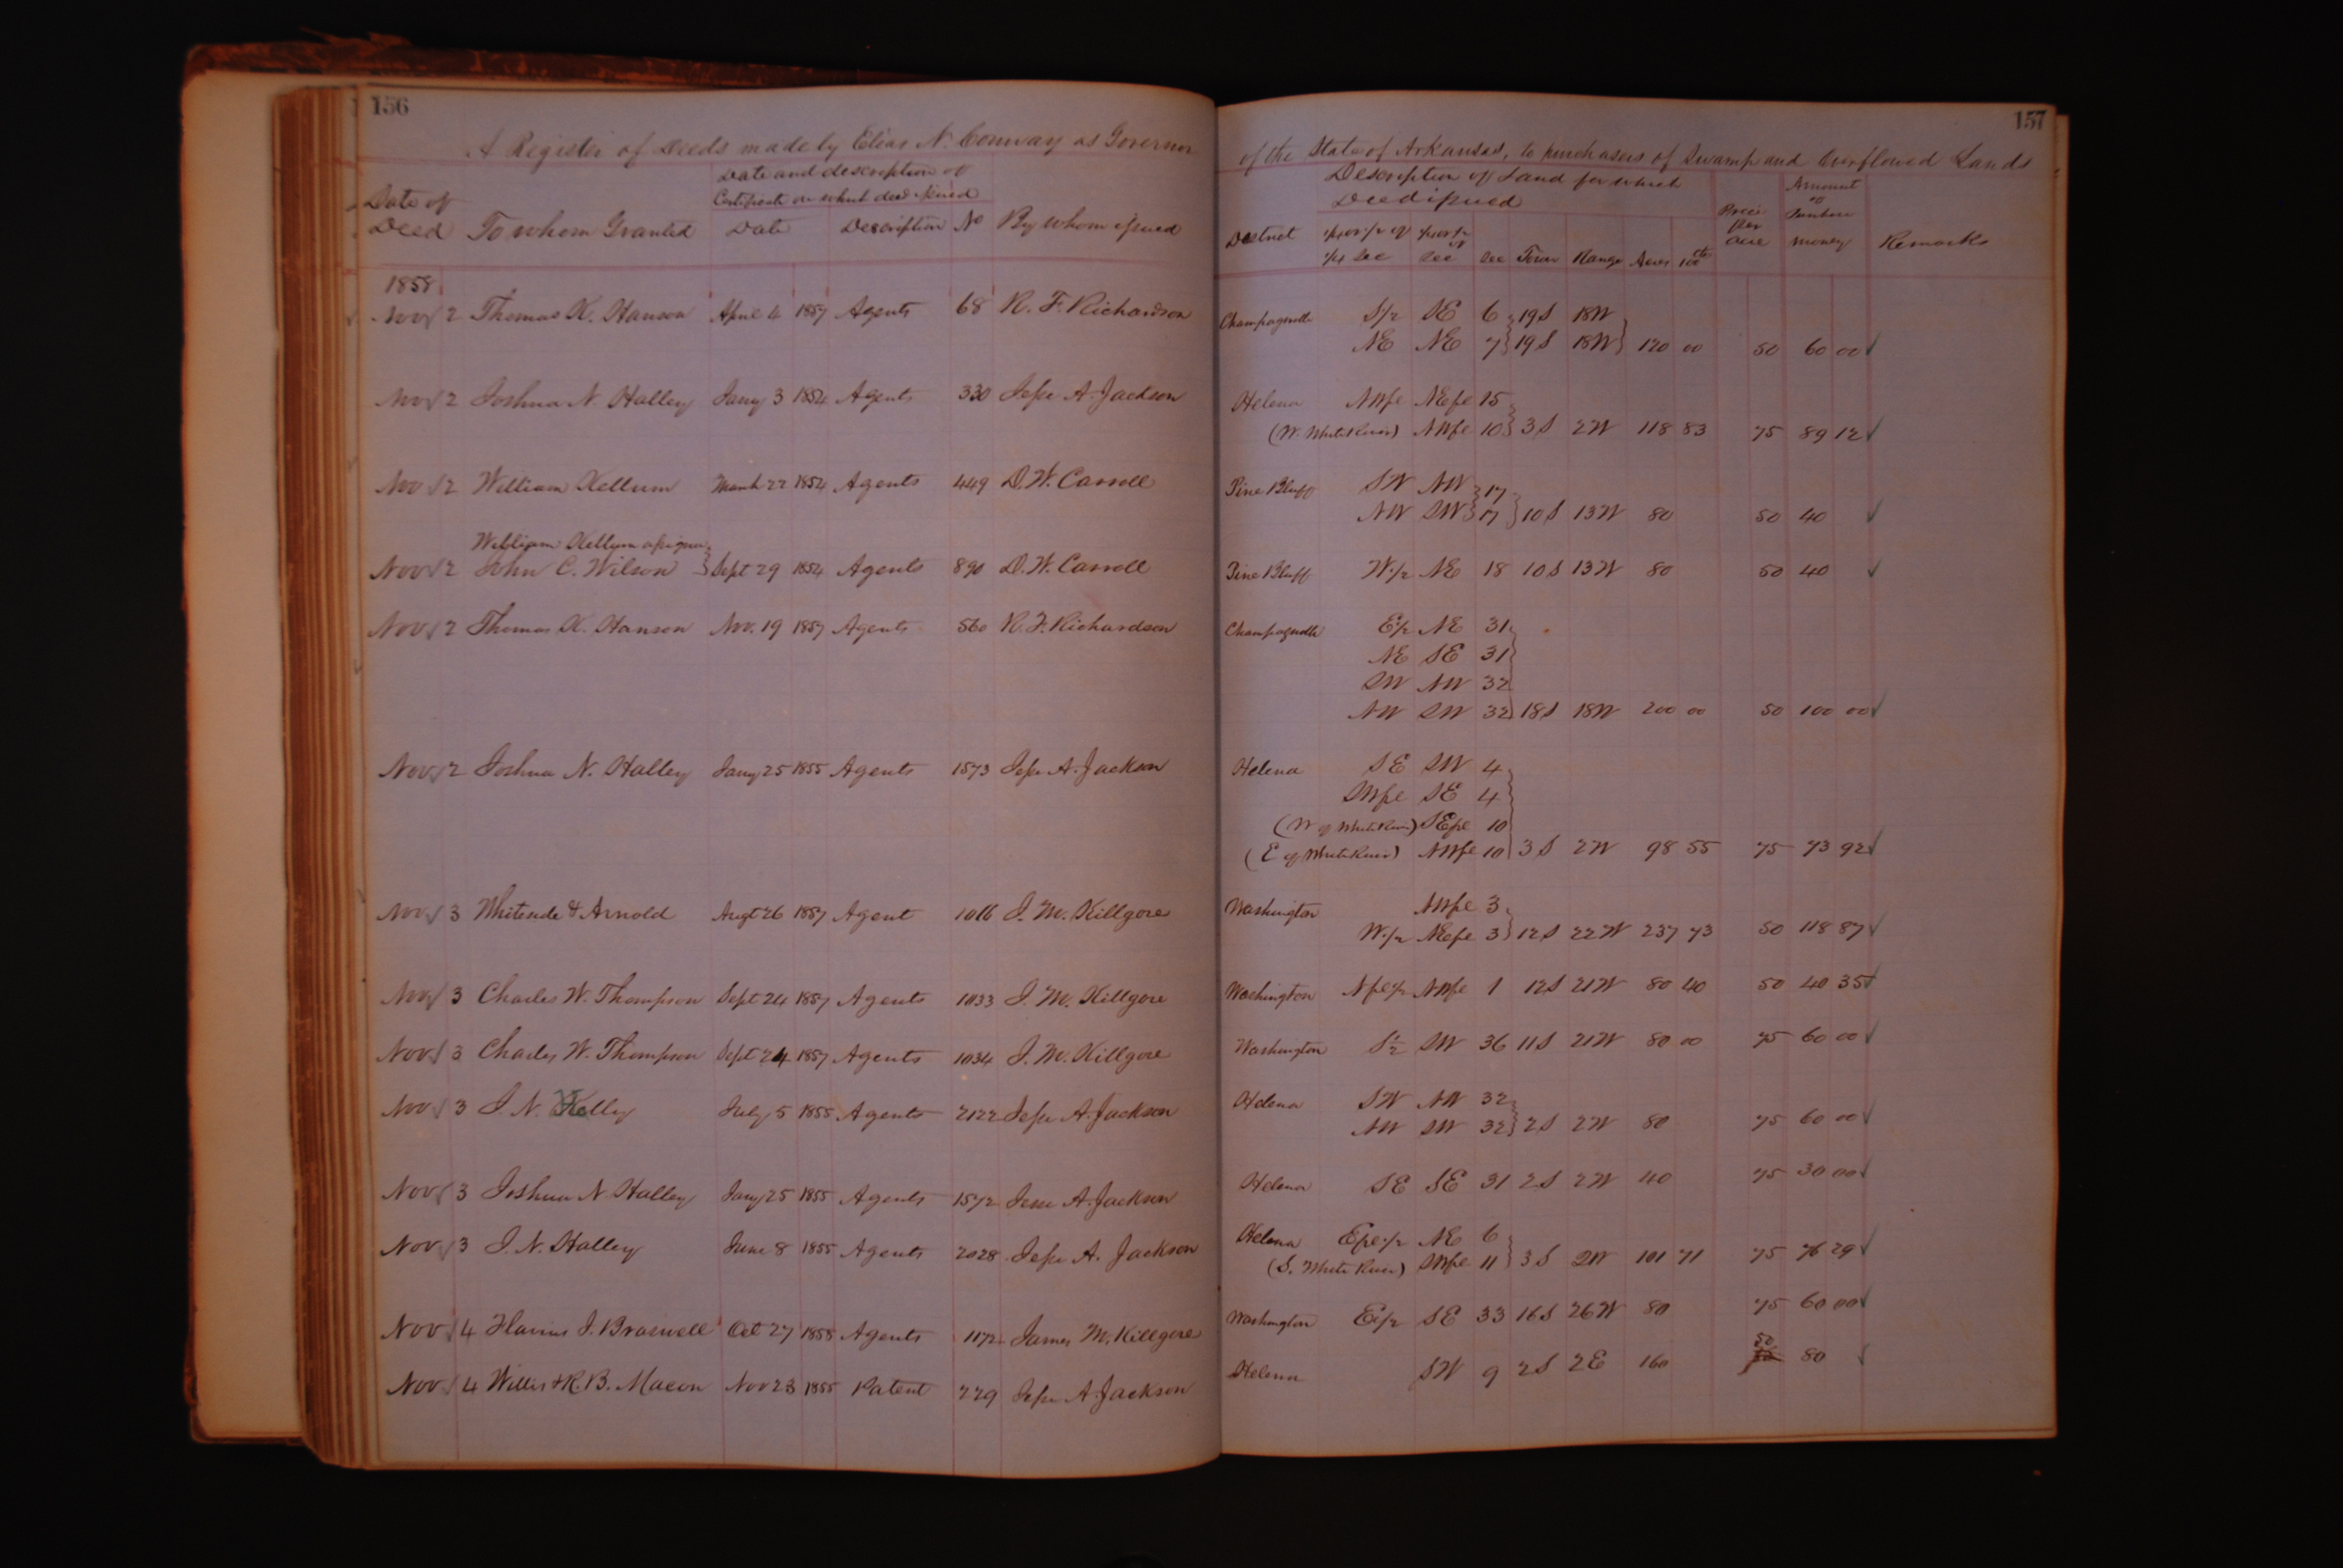 156
A Register of Deeds made by Elias N. Conway as Governor
Date of Deed To whom Granted Date and description of Certificate on which deed issued By whom issued
Date Description No
1858
Nov 2 Thomas K. Hanson April 4 1857 Agents 68 R. F. Richardson
Nov 2 Joshua N. Halley Jany 3 1854 Agents 330 Jesse A. Jackson
Nov 2 William Kellum March 22 1854 Agents 449 D. W. Carroll
William Kellum assignee
Nov 2 John C. Wilson Sept 29 1854 Agents 890 D. W. Carroll
Nov 2 Thomas K. Hanson Nov. 19 1857 Agents 560 R. F. Richardson
Nov 2 Joshua N. Halley Jany 25 1855 Agents 1573 Jesse A. Jackson
Nov 3 Whiteside & Arnold Augt 26 1857 Agent 1016 J. M. Killgore
Nov 3 Charles W. Thompson Sept 24 1857 Agents 1033 J. M. Killgore
Nov 3 Charles W. Thompson Sept 24 1857 Agents 1034 J. M. Killgore
Nov 3 J. N. July 5 1855 Agents 2122 Jesse A. Jackson
Nov 3 Joshua N Halley Jany 25 1855 Agents 1572 Jesse A. Jackson
Nov 3 J. N. Halley June 8 1855 Agents 2028 Jesse A. Jackson
Nov 4 J. Braswell Oct 27 1858 Agents 1172 James M. Killgore
Nov 4 Willis & R. B. Macon Nov 23 1855 Patent 229 Jesse A. Jackson
157
of the State of Arkansas, to purchasers of Swamp and Overflowed Lands
Description of Land for which Deed issued
District ¼ or ½ of ¼ Sec ¼ or ½ of Sec Sec Town Range Acres 100ths Price per acre Amount of Purchase money Remarks
Champagnolle S½ SE 6 19S 18W
NE NE 7 19S 18W 120 00 50 60 00 ✓
Helena NWfc NEfc 15
(W. White River) NWfc 10 3S 2W 118 83 75 89 12 ✓
Pine Bluff SW NW 17
NW SW 17 10S 13W 80 50 40 ✓
Pine Bluff W½ NE 18 10S 13W 80 50 40 ✓
Champagnolle E½ NE 31
NE SE 31
SW NW 32
NW SW 32 18S 18W 200 00 50 100 00 ✓
Helena SE SW 4
SWfc SE 4
(W of White River) SEfc 10
(E of White River) NWfc 10 3S 2W 98 55 75 73 92 ✓
Washington NWfc 3
W½ NEfc 3 12S 22W 237 73 50 118 87 ✓
Washington Nfc½ NWfc 1 12S 21W 80 40 50 40 35 ✓
Washington S½ SW 36 11S 21W 80 00 75 60 00 ✓
Helena SW NW 32
NW SW 32 2S 2W 80 75 60 00 ✓
Helena SE SE 31 2S 2W 40 75 30 00 ✓
Helena Efc½ NE 6
(S. White River) SWfc 11 3S 2W 101 71 75 76 29 ✓
Washington E½ SE 33 16S 26W 80 75 60 00 ✓
Helena SW 9 2S 2E 160 50 80 ✓